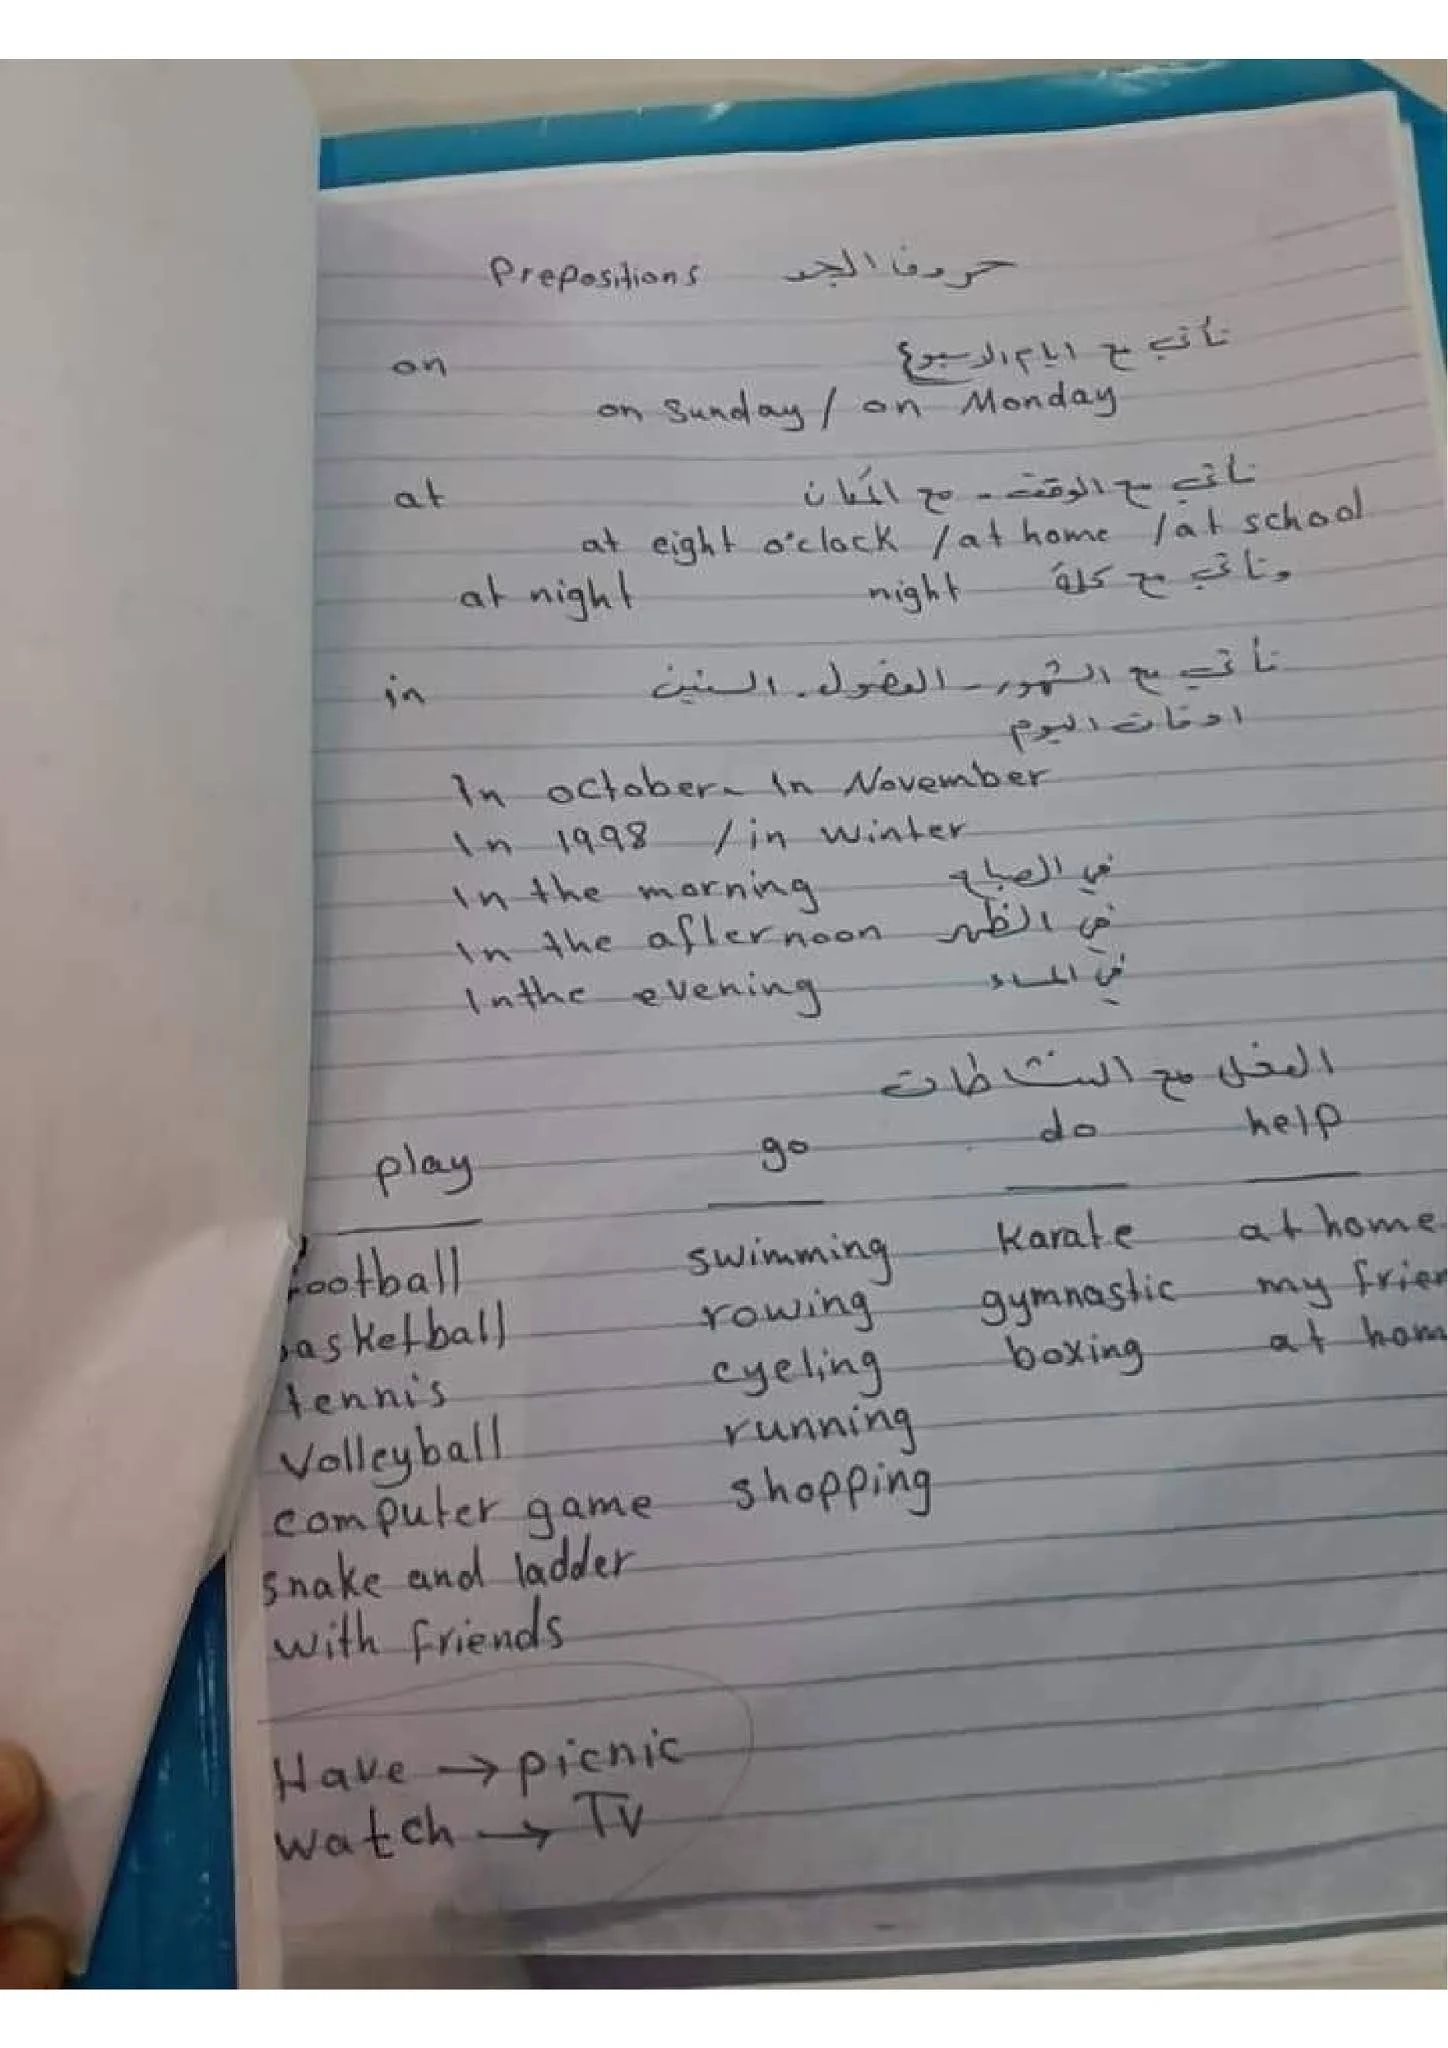 Prepositions حروف الجر
on تأتي مع ايام الاسبوع
on Sunday / on Monday
at تأتي مع الوقت - مع المكان
at eight o'clock / at home / at school
at night night وتأتي مع كلمة
in تأتي مع الشهور - الفصول - السنين
اوقات اليوم
In october - In November
In 1998 / in winter
In the morning في الصباح
In the afternoon في الظهر
In the evening في المساء
الفعل مع النشاطات
play go do help
football swimming Karate at home
basketball rowing gymnastic my frien
tennis cycling boxing at hom
Volleyball running
computer game shopping
snake and ladder
with friends
Have → picnic
watch → TV